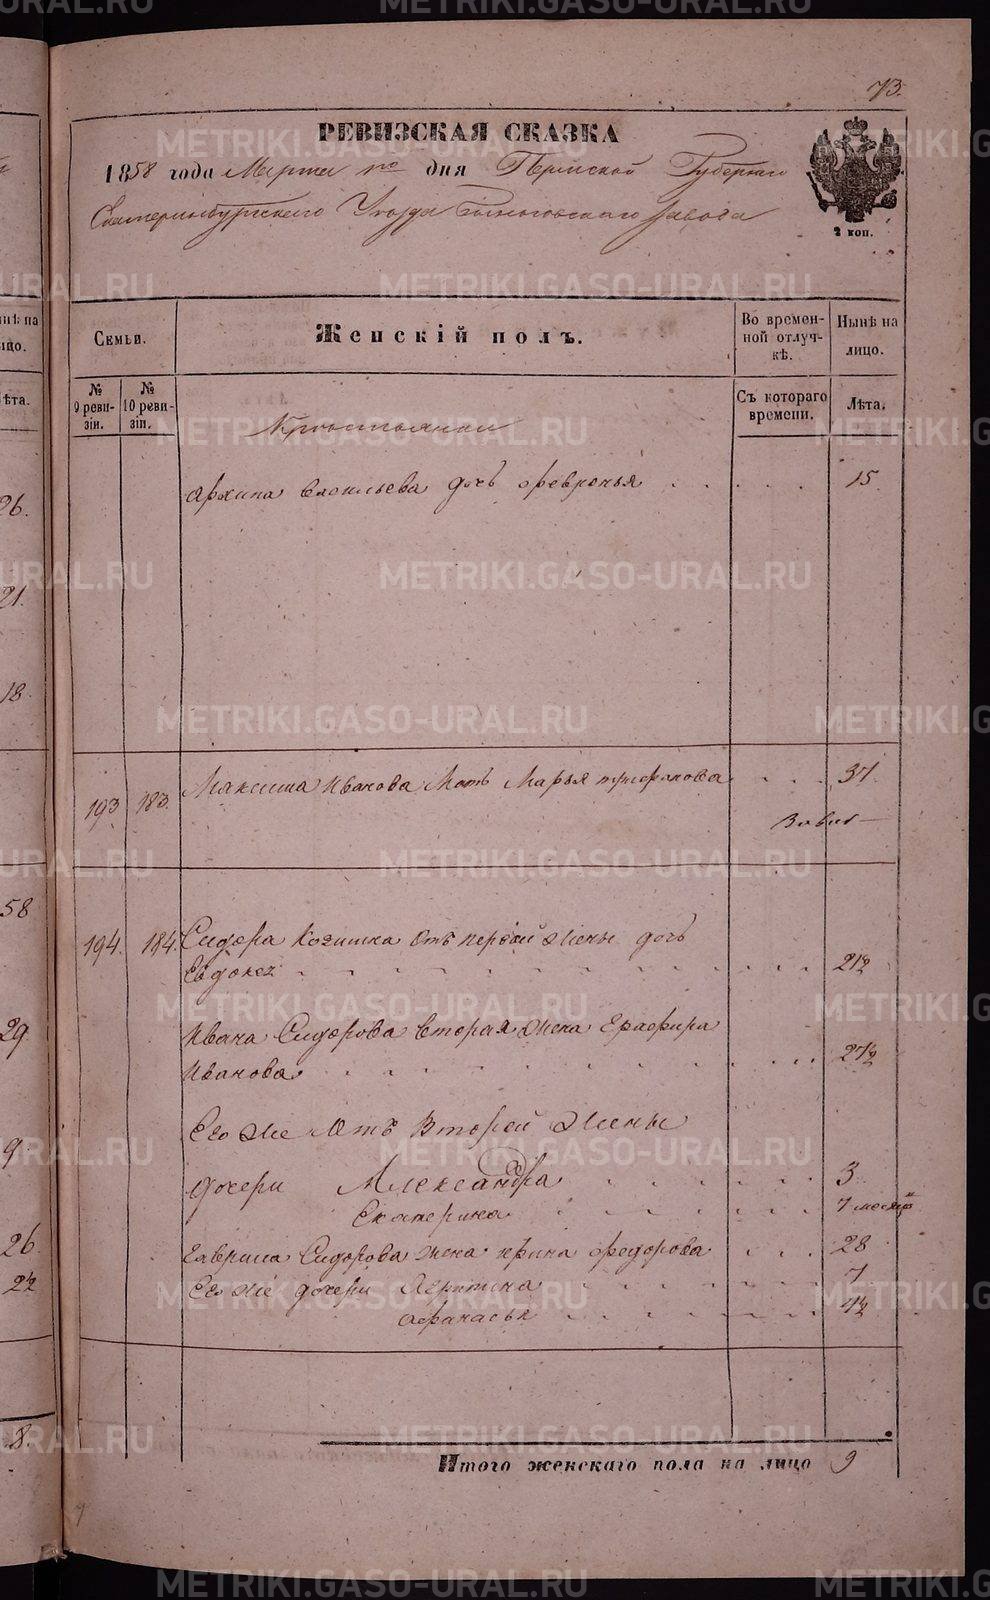 73.
РЕВИЗСКАЯ СКАЗКА
1858 года Марта дня Пермской Губернiи
Екатеринбургскаго Уезда завода
2 коп.
Семьи.
Женскiй полъ.
Во времен-
ной отлуч-
кѣ.
Нынѣ на
лицо.
№
9 реви-
зiи.
№
10 реви-
зiи.
Съ котораго
времени.
Лѣта.
Крестьянки
Архипа Васильева дочь Февронья 15
193 183. Максима Иванова Мать Марья Трифонова 37.
194. 184. Сидора от первой жены дочь 21½
Ивана Сидорова вторая жена
Иванова 27½
Его же от Второй жены
дочери Александра 3
Екатерина 7 месяц
Гаврила Сидорова жена Ирина Федорова 28
Его же дочери 7
Афанасья 4½
Итого женскаго пола на лицо 9
26.
21.
18.
58
29.
9.
26.
2½
8.
METRIKI.GASO-URAL.RU